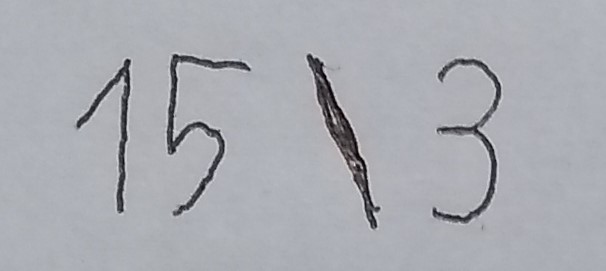 15 \ 3